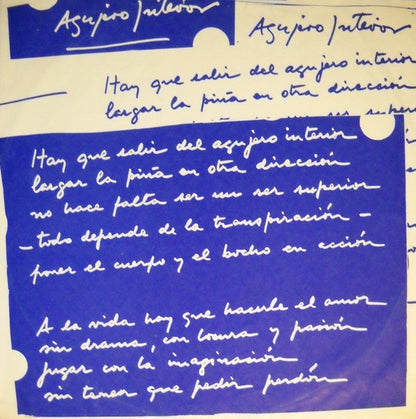 Agujero Interior
Agujero Interior
Hay que salir del agujero interior
largar la piña en otra dirección
Hay que salir del agujero interior
largar la piña en otra dirección
no hace falta ser un ser superior
-todo depende de la transpiración-
poner el cuerpo y el bocho en acción
A la vida hay que hacerle el amor
sin drama, con locura y pasión
jugar con la imaginación
sin tener que pedir perdón